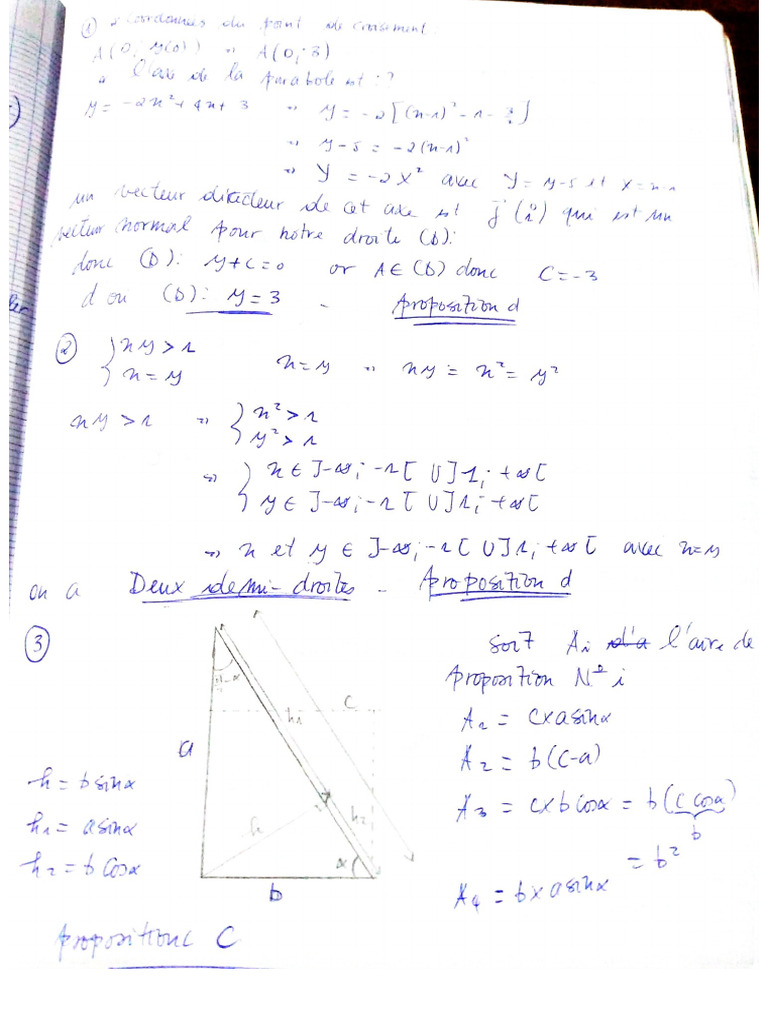 ① • Coordonnées du point de croisement:
A(0, y(0)) " A(0, 3)
• l'axe de la parabole est : ?
y = -2x² + 4x + 3 " y = -2[(x-1)² - 1 - 3/2]
" y - 5 = -2(x-1)²
" Y = -2X² avec Y = y-5 et X = x-1
un vecteur directeur de cet axe est j(0 1) qui est un
vecteur normal pour notre droite (D):
donc (D): y + c = 0 or A ∈ (D) donc C = -3
d'où (D): y = 3 - Proposition d
② { xy > 1
{ x = y x = y " xy = x² = y²
xy > 1 " { x² > 1
{ y² > 1
" { x ∈ ]-∞; -1[ U ]1; +∞[
{ y ∈ ]-∞; -1[ U ]1; +∞[
" x et y ∈ ]-∞; -1[ U ]1; +∞[ avec x = y
on a Deux demi-droites - Proposition d
③
Soit Ai l'aire de
Proposition N° i
A1 = c×a sinα
A2 = b(c-a)
A3 = c×b cosα = b(c cosα)
b
= b²
A4 = b×a sinα
a
c
h1
h
h2
α
b
h = b sinα
h1 = a sinα
h2 = b cosα
Proposition C